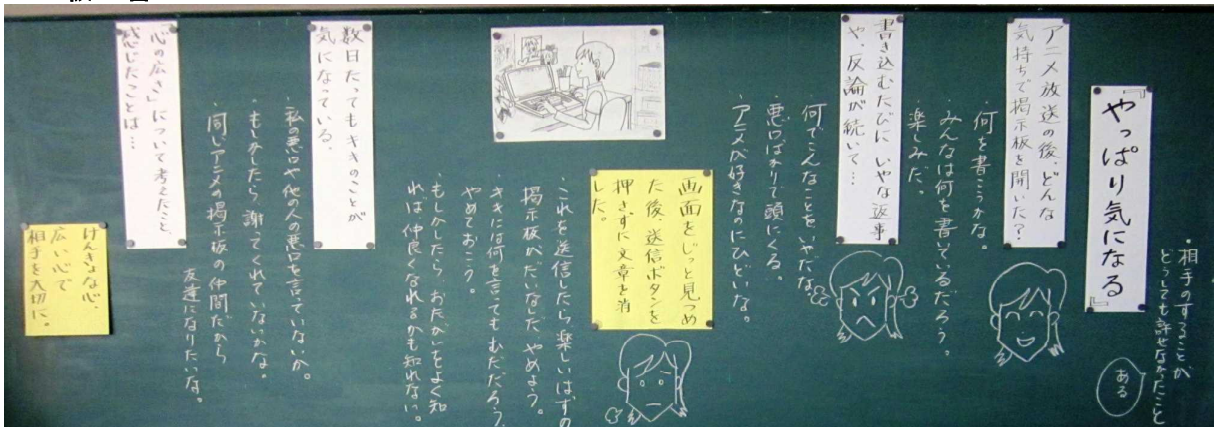 『やっぱり気になる』
・相手のすることが
どうしても許せなかったこと
ある
アニメ放送の後、どんな
気持ちで掲示板を開いた？
・何を書こうかな。
・みんなは何を書いているだろう。
・楽しみだ。
書き込むたびに いやな返事
や、反論が続いて…
・何でこんなことを、いやだな。
・悪口ばかりで頭にくる。
・アニメが好きなのにひどいな。
画面をじっと見つめ
た後、送信ボタンを
押さずに文章を消
した。
・これを送信したら楽しいはずの
掲示板がだいなしだ。やめよう。
・キキには何を言ってもむだだろう。
やめておこう。
・もしかしたら、おたがいをよく知
れば仲良くなれるかも知れない。
数日たってもキキのことが
気になっている。
・私の悪口や他の人の悪口を言っていないか。
・もしかしたら謝ってくれていないかな。
・同じアニメの掲示板の仲間だから
友達になりたいな。
「心の広さ」について考えたこと、
感じたことは…
けんきょな心、
広い心で
相手を大切に。